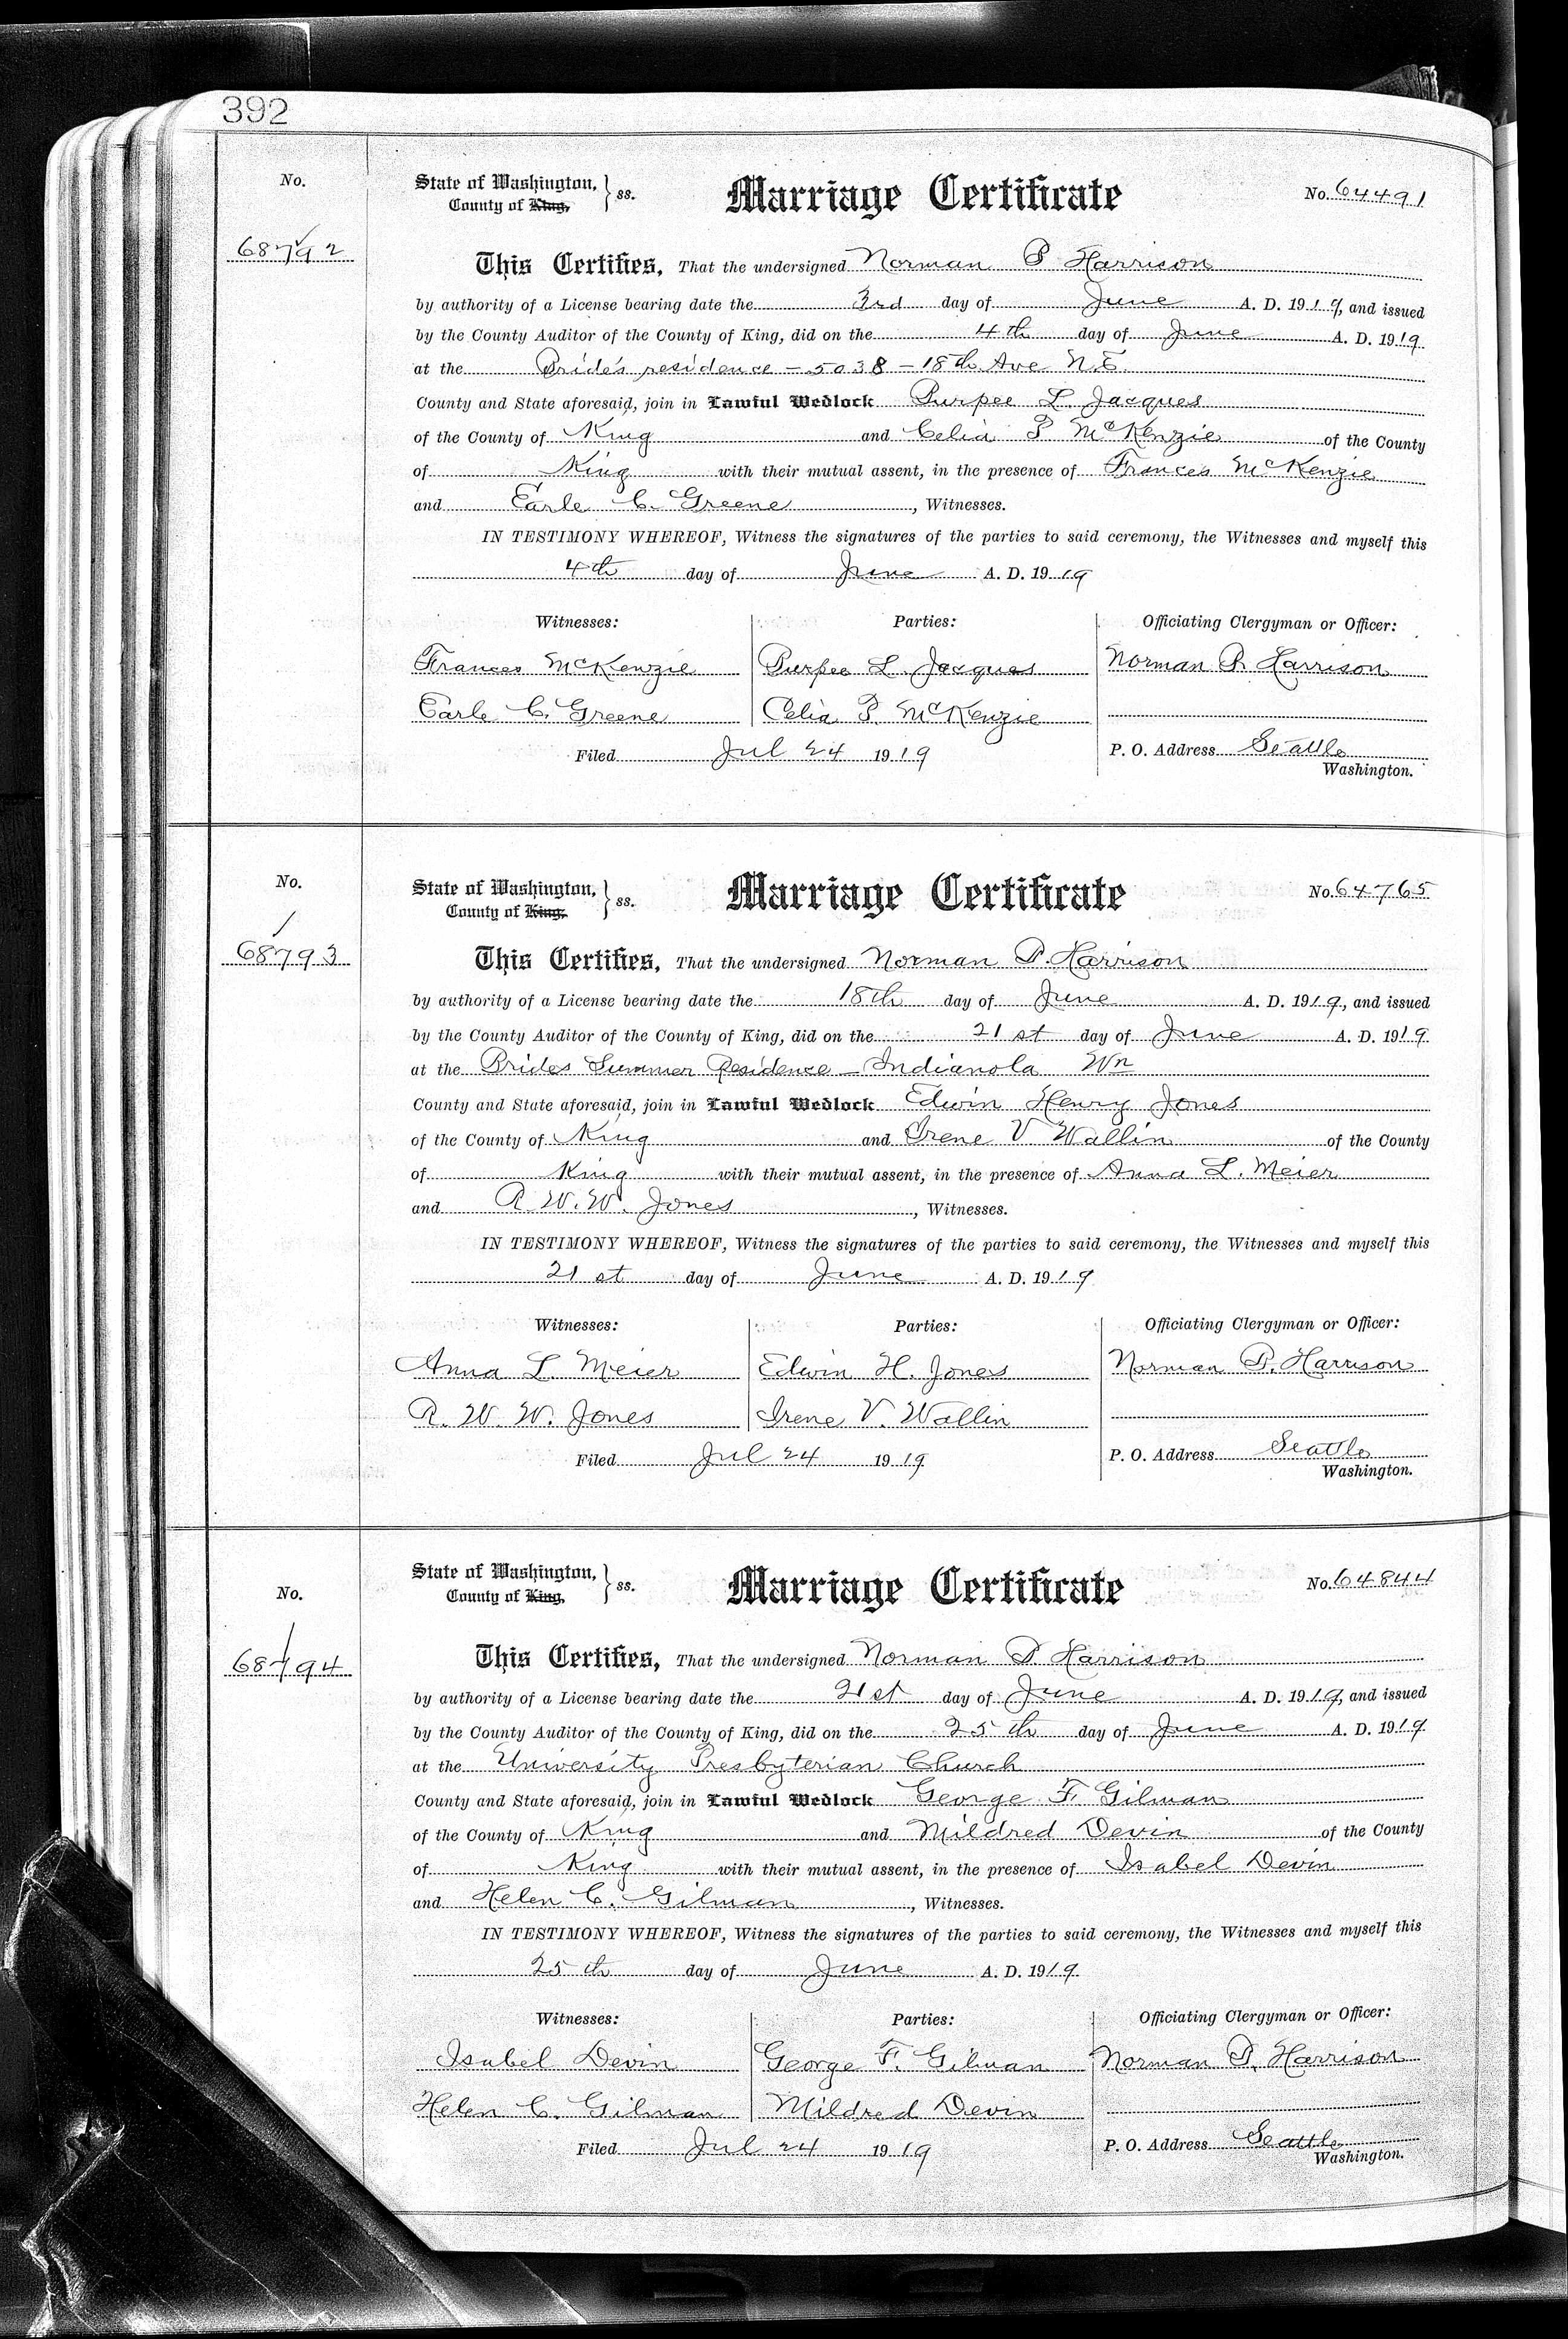 392
No.
68792
State of Washington, County of King, ss.
Marriage Certificate
No. 64491
This Certifies, That the undersigned Norman P Harrison
by authority of a License bearing date the 3rd day of June A. D. 1919, and issued
by the County Auditor of the County of King, did on the 4th day of June A. D. 1919
at the Bride's residence - 5038 - 18th Ave N.E.
County and State aforesaid, join in Lawful Wedlock Purpee L. Jacques
of the County of King and Celia P McKenzie of the County
of King with their mutual assent, in the presence of Frances McKenzie
and Earle C. Greene, Witnesses.
IN TESTIMONY WHEREOF, Witness the signatures of the parties to said ceremony, the Witnesses and myself this
4th day of June A. D. 1919
Witnesses: Parties: Officiating Clergyman or Officer:
Frances McKenzie Purpee L. Jacques Norman P. Harrison
Earle C. Greene Celia P. McKenzie
Filed Jul 24 1919 P. O. Address Seattle
Washington.
No.
68793
State of Washington, County of King, ss.
Marriage Certificate
No. 64765
This Certifies, That the undersigned Norman P. Harrison
by authority of a License bearing date the 18th day of June A. D. 1919, and issued
by the County Auditor of the County of King, did on the 21st day of June A. D. 1919
at the Brides Summer Residence - Indianola Wn
County and State aforesaid, join in Lawful Wedlock Edwin Henry Jones
of the County of King and Irene V Wallin of the County
of King with their mutual assent, in the presence of Anna L. Meier
and R. W. W. Jones, Witnesses.
IN TESTIMONY WHEREOF, Witness the signatures of the parties to said ceremony, the Witnesses and myself this
21st day of June A. D. 1919
Witnesses: Parties: Officiating Clergyman or Officer:
Anna L. Meier Edwin H. Jones Norman P. Harrison
R. W. W. Jones Irene V. Wallin
Filed Jul 24 1919 P. O. Address Seattle
Washington.
No.
68794
State of Washington, County of King, ss.
Marriage Certificate
No. 64844
This Certifies, That the undersigned Norman P. Harrison
by authority of a License bearing date the 21st day of June A. D. 1919, and issued
by the County Auditor of the County of King, did on the 25th day of June A. D. 1919
at the University Presbyterian Church
County and State aforesaid, join in Lawful Wedlock George F. Gilman
of the County of King and Mildred Devin of the County
of King with their mutual assent, in the presence of Isabel Devin
and Helen C. Gilman, Witnesses.
IN TESTIMONY WHEREOF, Witness the signatures of the parties to said ceremony, the Witnesses and myself this
25th day of June A. D. 1919
Witnesses: Parties: Officiating Clergyman or Officer:
Isabel Devin George F. Gilman Norman P. Harrison
Helen C. Gilman Mildred Devin
Filed Jul 24 1919 P. O. Address Seattle
Washington.